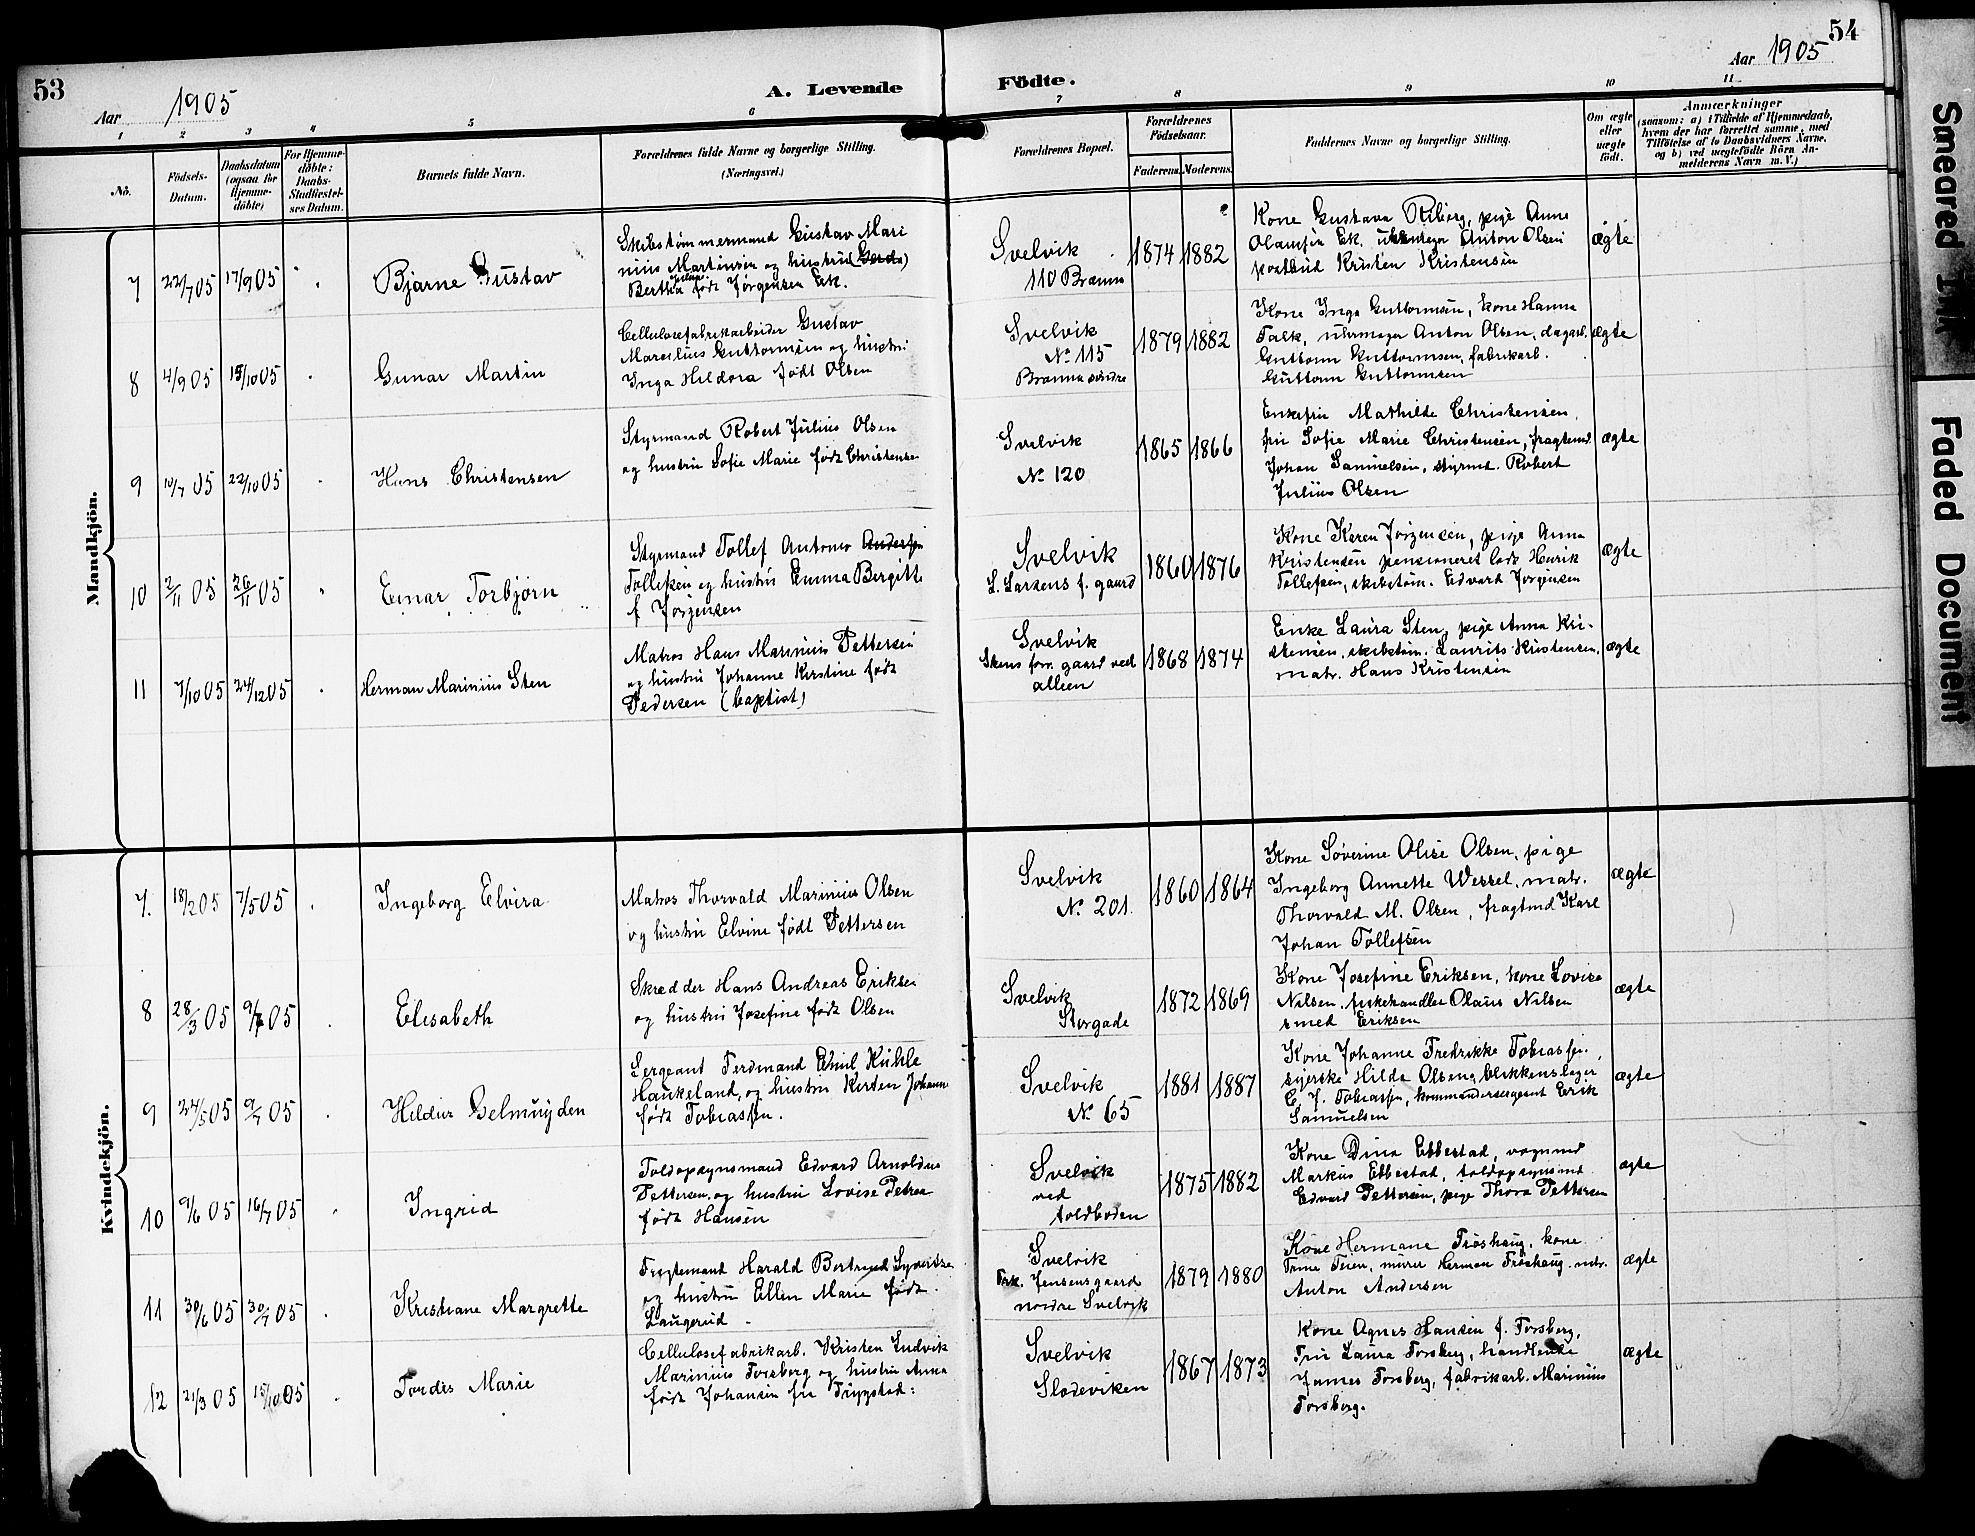 53
Aar 1905
A. Levende
Födte.
Aar 1905
54
1 2 3 4 5 6 7 8 9 10 11
No.
Födsels-
Datum.
Daabsdatum
(ogsaa for
Hjemme-
döbte)
For Hjemme-
döbte:
Daabs-
Stadfæstel-
ses Datum.
Barnets fulde Navn.
Forældrenes fulde Navne og borgerlige Stilling.
(Næringsvei.)
Forældrenes Bopæl.
Forældrenes
Födselsaar.
Faderens. Moderens.
Faddernes Navne og borgerlige Stilling.
Om ægte
eller
uægte
født.
Anmærkninger
(saasom: a) i Tilfælde af Hjemmedaab,
hvem der har forrettet samme, med
Tilføielse af to Daabsvidners Navne,
og b) ved uægtefødte Börn An-
melderens Navn m. V.)
Mandkjön.
7 22/7 05 17/9 05 Bjarne Gustav
Skibstømmermand Gustav Mari
nius Martinsen og hustru (Gerda)
Bertha født Jørgensen Ek.
Svelvik
110 Brænna
1874 1882
Kone Gustava Riberg, pige Anna
Olamsin Ek. uhrmager Anton Olsen
postbud Kristen Kristensen
ægte
8 4/9 05 15/10 05 Gunar Martin
Cellulosefabrikarbeider Gustav
Marselius Guttormsen og hustru
Inga Hildora født Olsen
Svelvik
No 115
Brænna søndre
1879 1882
Kone Inga Guttormsen, kone Hanna
Falk, uhrmager Anton Olsen, dagarb.
Guttorm Guttormsen, fabrikarb.
Guttorm Guttormsen
ægte
9 10/7 05 22/10 05 Hans Christensen
Styrmand Robert Julius Olsen
og hustru Sofie Marie født Christensen
Svelvik
No 120
1865 1866
Enkefru Mathilde Christensen,
fru Sofie Marie Christensen, fragtemd.
Johan Samuelsen, styrmd. Robert
Julius Olsen
ægte
10 2/11 05 26/11 05 Einar Torbjørn
Styrmand Tollef Antonio Andersen
Tollefsen og hustru Emma Bergitte
f Jørgensen
Svelvik
L. Larsens f. gaard
1860 1876
Kone Karen Jørgensen, pige Anna
Kristensen pensioneret lods Henrik
Tollefsen, skibstøm. Edvard Jørgensen
ægte
11 7/10 05 24/12 05 Herman Marinius Sten
Matros Hans Marinius Pettersen
og hustru Johanne Kirstine født
Pedersen (baptist)
Svelvik
Stens forr. gaard ved
alleen
1868 1874
Enke Laura Sten, pige Anna Kri-
stensen, skibstøm. Laurits Kristensen,
matr. Hans Kristensen
ægte
Kvindekjön.
7. 18/2 05 7/5 05 Ingeborg Elvira
Matros Thorvald Marinius Olsen
og hustru Elvine født Pettersen
Svelvik
No 201.
1860 1864
Kone Søverine Olise Olsen, pige
Ingeborg Annette Wessel, matr.
Thorvald M. Olsen, fragtmd Karl
Johan Tollefsen
ægte
8 28/3 05 9/7 05 Elisabeth
Skrædder Hans Andreas Eriksen
og hustru Josefine født Olsen
Svelvik
Storgade
1872 1869
Kone Josefine Eriksen, kone Lovise
Nilsen, fiskehandler Olaus Nilsen
smed Eriksen
ægte
9 24/5 05 9/7 05 Hildur Gelmuyden
Sergeant Ferdinand Emil Kuhle
Haukeland, og hustru Kirsten Johanne
født Tobiassen.
Svelvik
No 65
1881 1887
Kone Johanne Fredrikke Tobiassen,
syerske Hilda Olsen, blikkenslager
C. J. Tobiassen, kommandersergeant Erik
Samuelsen
ægte
10 9/6 05 16/7 05 Ingrid
Toldopsynsmand Edvard Arnoldus
Pettersen og hustru Lovise Petrea
født Hansen
Svelvik
ved
toldboden
1875 1882
Kone Dina Ebbestad, vognmd
Markus Ebbestad, toldopsynsmd
Edvard Pettersen, pige Thora Pettersen
ægte
11 30/6 05 30/7 05 Kristiane Margrethe
Fragtemand Harald Bertrand Syvertsen
og hustru Ellen Marie født
Laugerud
Svelvik
Frk. Jensens gaard
nordre Svelvik
1879 1880
Kone Hermane Frøshaug, kone
Trine Teien, murer Herman Frøshaug, mtr.
Anton Andersen
ægte
12 21/3 05 15/10 05 Tordis Marie
Cellulosefabrikarb. Kristen Ludvik
Marinius Forsberg og hustru Anna
født Johansen fra Trygstad:
Svelvik
Sladeviken
1867 1873
Kone Agnes Hansen f. Forsberg,
Fru Laura Forsberg, handlende
James Forsberg, fabrikarb. Marinius
Forsberg.
ægte
Smeared Ink
Faded Document